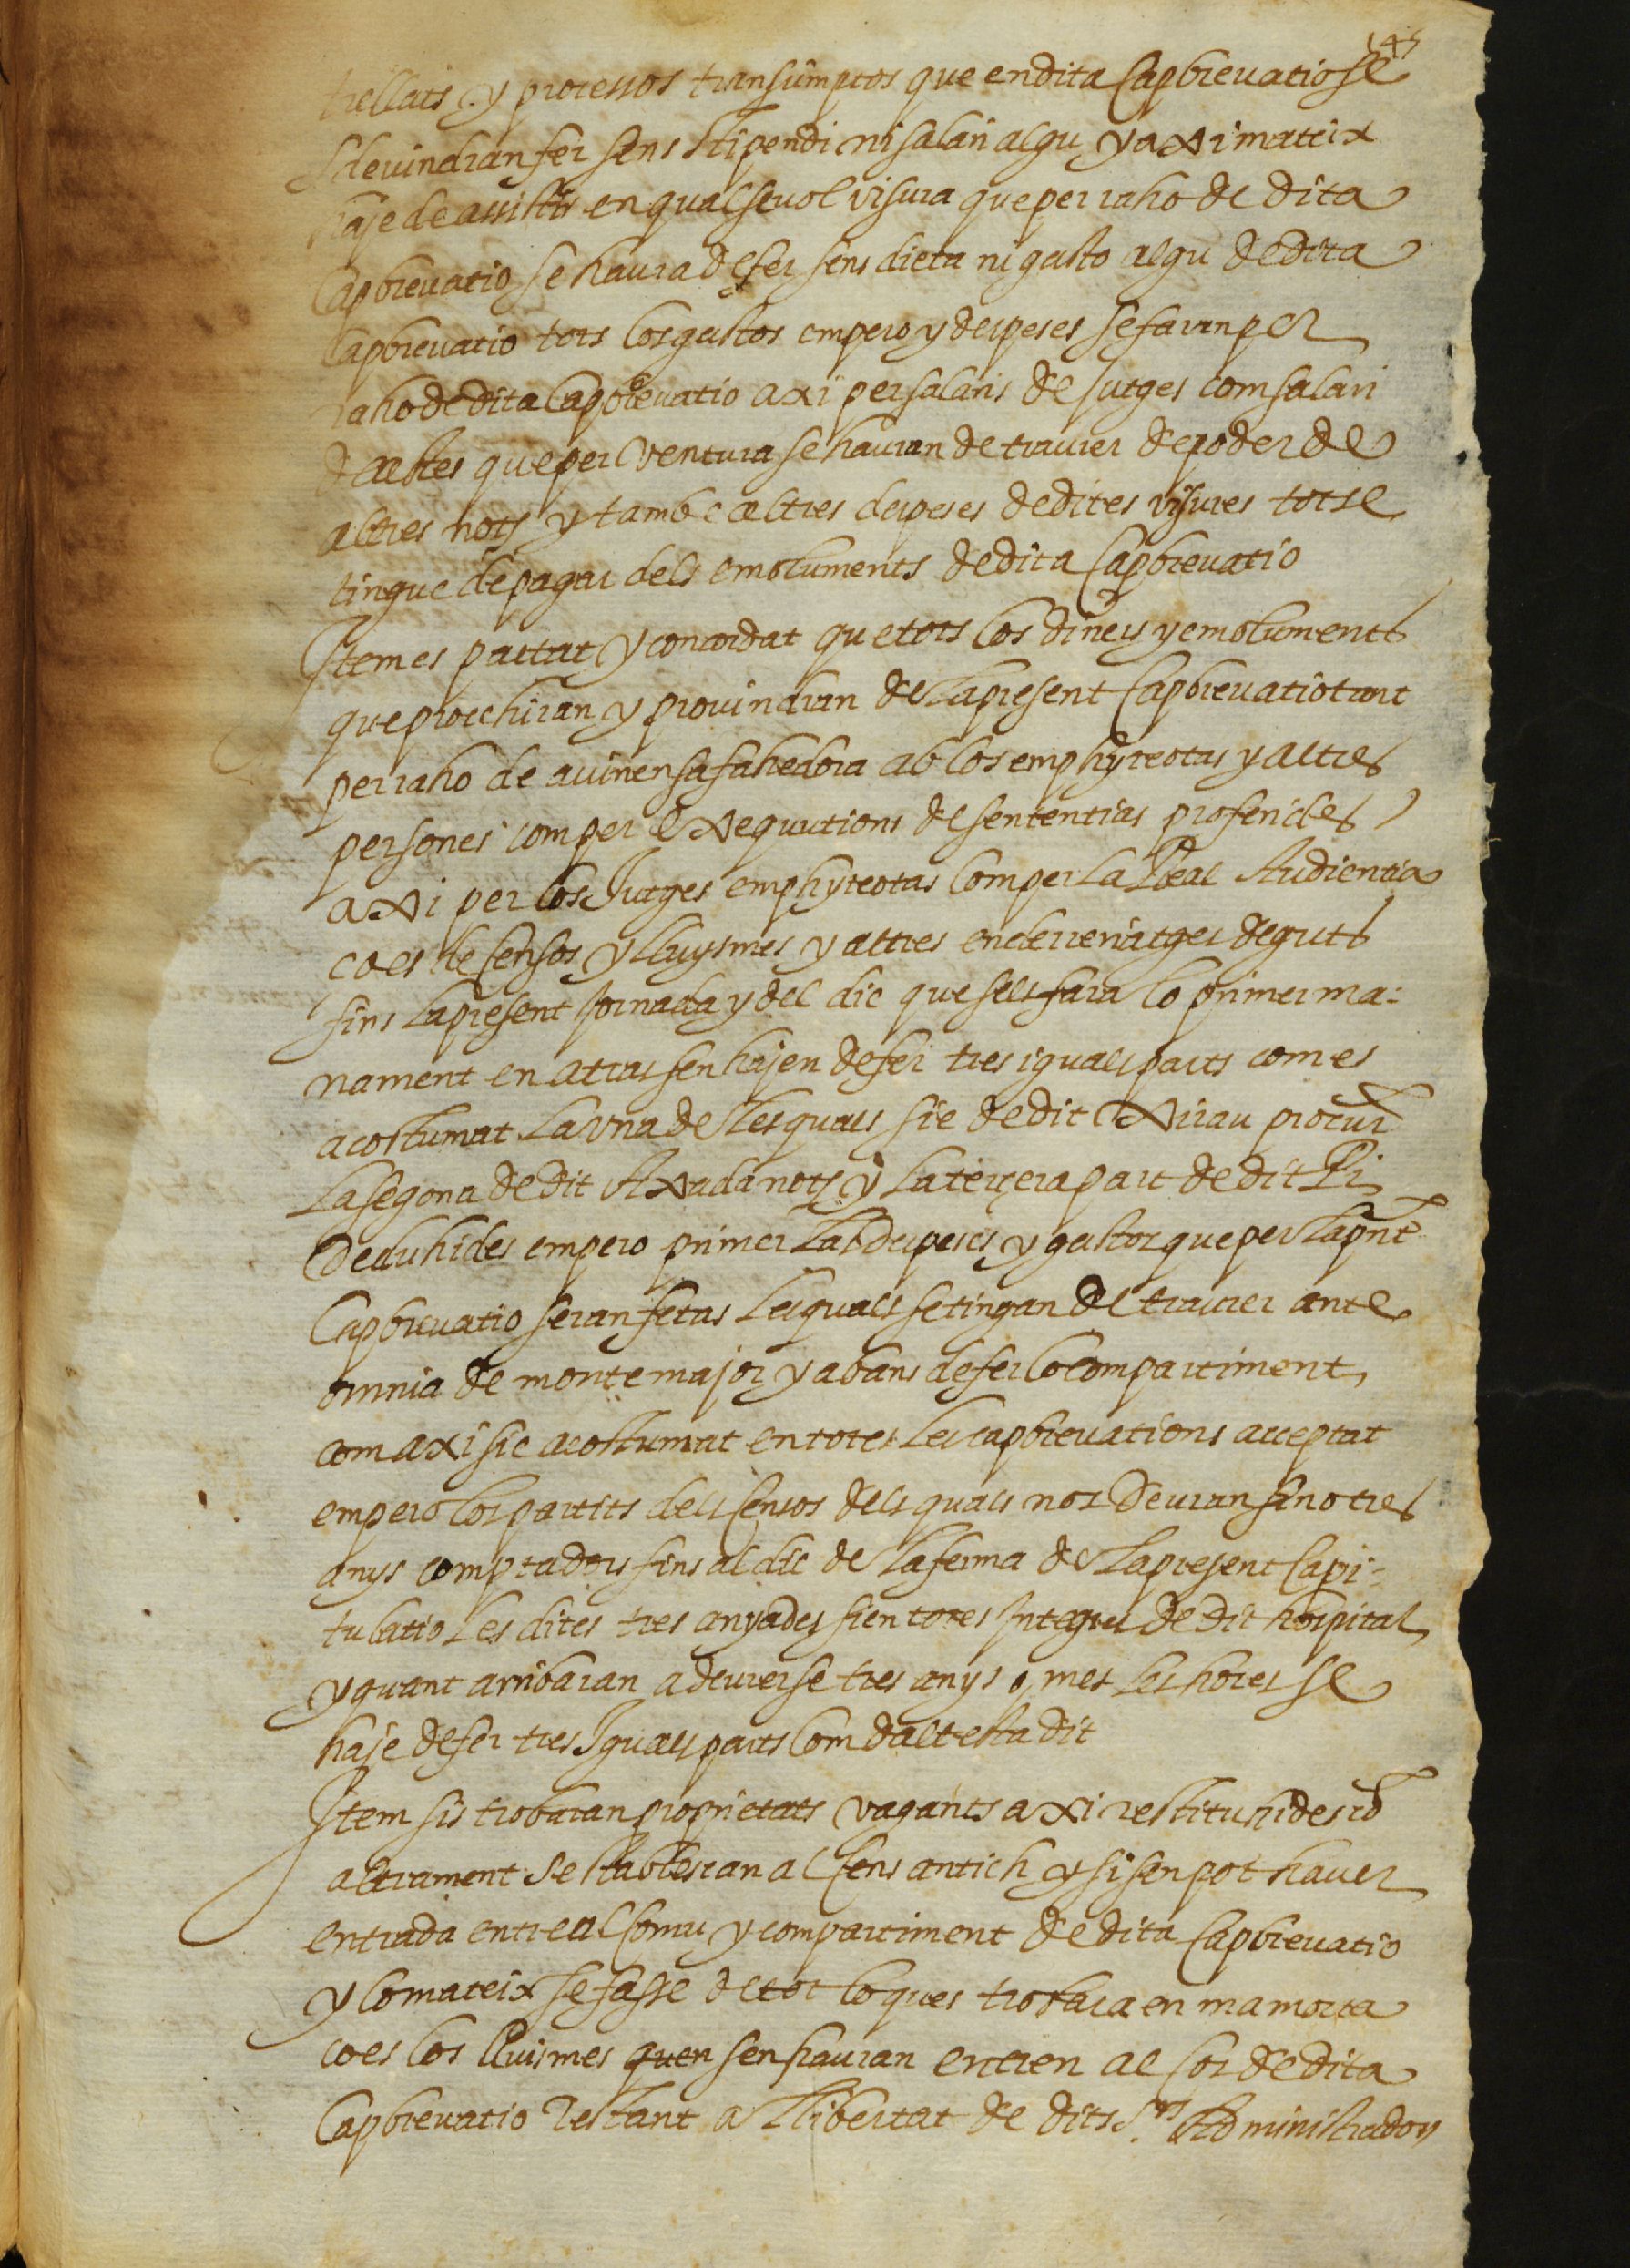 145
trellats y processos transumptos que en dita Capbrevatio se
sdevindran fer sens stipendi ni salari algu y axi mateix
haje de assistir en qualsevol visura que per raho de dita
Capbrevatio se haura de fer sens dieta ni gasto algu de dita
Capbrevatio tots los gastos empero y despeses se faran per
raho de dita Capbrevatio axi per salaris de Jutges com salari
de actes que per ventura se hauran de traurer de poder de
altres nots y tambe altres despeses de dites visures tot se
tingue de pagar dels emoluments de dita Capbrevatio
Item es pactat y concordat que tots los diners y emoluments
que procehiran y provindran de la present Capbrevatio tant
per raho de avinensa fahedora ab los emphyteotas y altres
persones com per exequutions de sententias proferides
axi per los Jutges emphyteotas com per la Real Audientia
ço es de Censos y lluysmes y altres enderreriatges deguts
fins la present Jornada y del die que sels fara lo primer ma:
nament en atras sen hajen de fer tres iguals parts com es
acostumat la una de les quals sie de dit Xirau procur
la segona de dit Axada notj y la tercera part de dit Pi
Deduhides empero primer las despeses y gastos que per la pnt
Capbrevatio seran fetas les quals se tingan de traurer ante
omnia de monte major y abans de fer lo compartiment
com axi sie acostumat en totes les capbrevations acceptat
empero los partits dels Censos dels quals nos deuran sino tres
anys comptadors fins al die de la ferma de la present Capi:
tulatio les dites tres anyades sien totes integres de dit hospital
y quant arribaran a deurerse tres anys o mes las hores se
haje de fer tres Iguals parts com dalt esta dit
Item sis trobaran proprietats vagants axi restituhides co
altrament se stablescan al Cens antich y si sen pot haver
entrada entre al Comu y compartiment de dita Capbrevatio
y lo mateix se fasse de tot lo ques trobara en ma morta
ço es los lluismes quen sen hauran entren al Cos de dita
Capbrevatio restant a llibertat de dits Srs Administradors